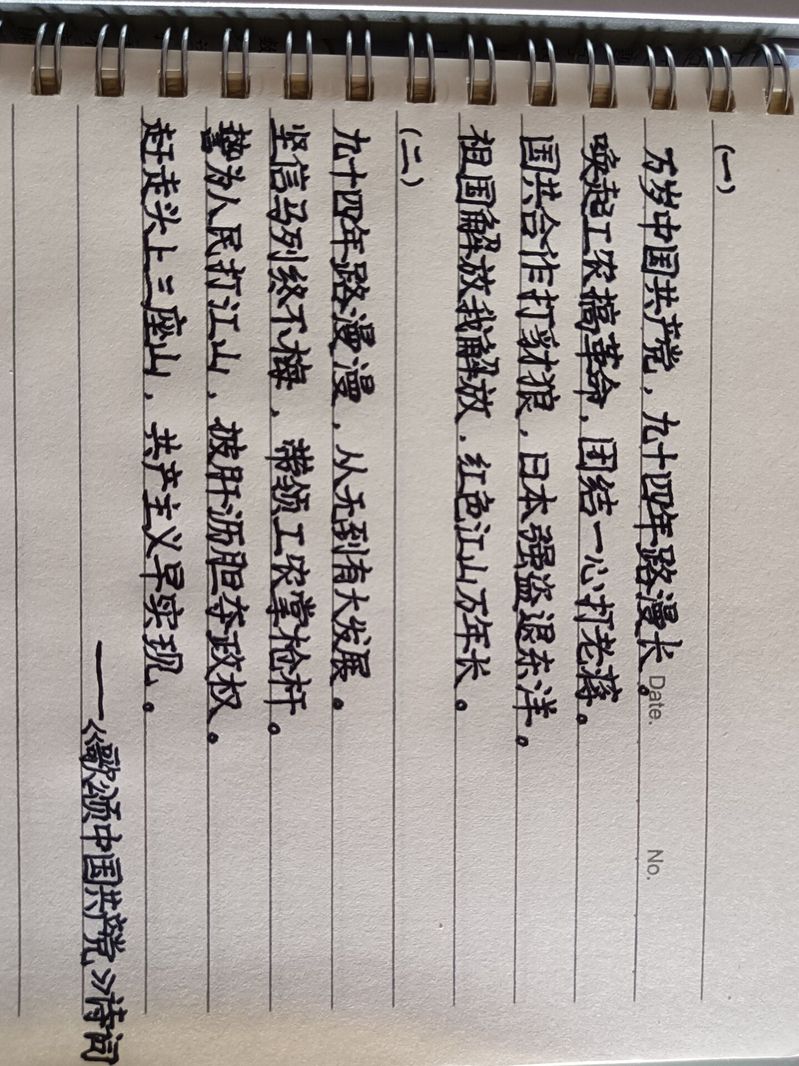 Date.
No.
(一)
万岁中国共产党，九十四年路漫长。
唤起工农搞革命，团结一心打老蒋。
国共合作打豺狼，日本强盗退东洋。
祖国解放我解放，红色江山万年长。
(二)
九十四年路漫漫，从无到有大发展。
坚信马列终不悔，带领工农掌枪杆。
誓为人民打江山，披肝沥胆夺政权。
赶走头上三座山，共产主义早实现。
——《歌颂中国共产党》诗词